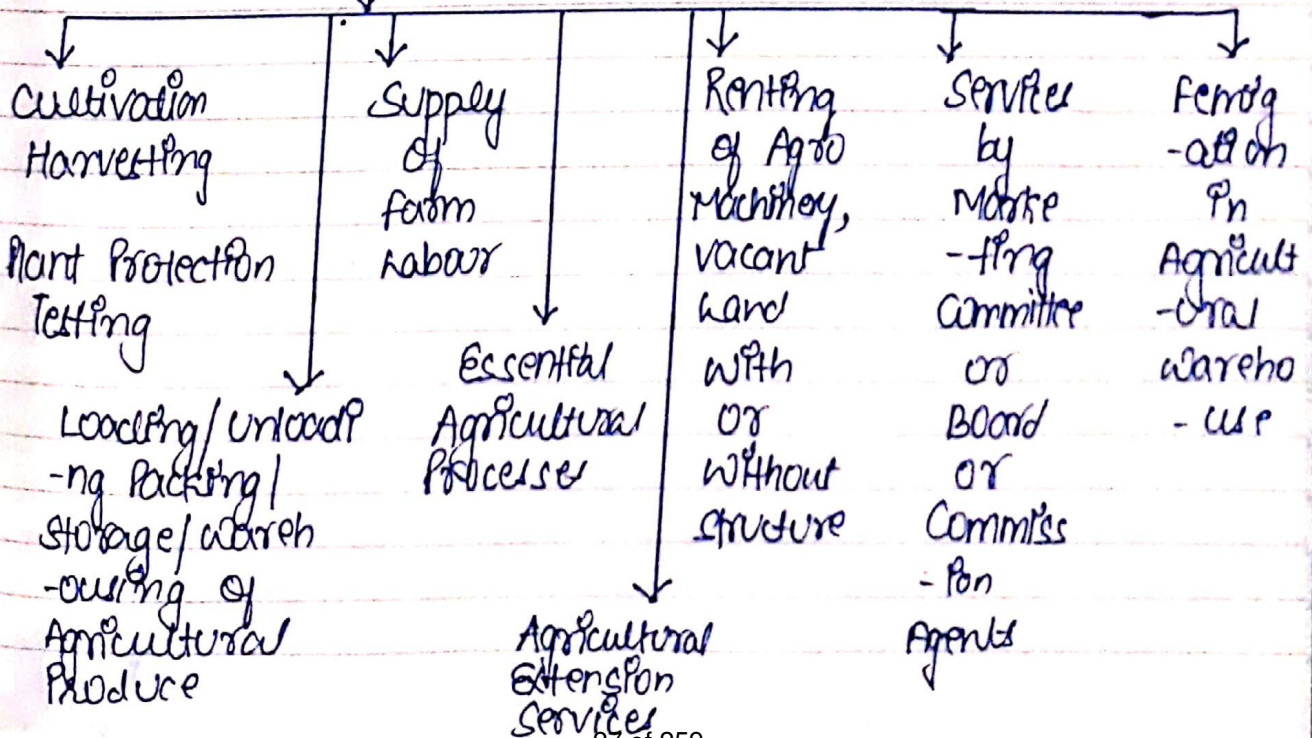 Cultivation
Harvesting
Plant Protection
Testing
Loading/Unloadi
-ng Packing/
Storage/Wareh
-ousing of
Agricultural
Produce
Supply
of
farm
Labour
Essential
Agricultural
Processes
Agricultural
Extension
Services
Renting
of Agro
Machiney,
vacant
Land
with
or
without
structure
Services
by
Marke
-ting
Committee
or
Board
or
Commiss
-ion
Agents
Femig
-ation
in
Agricult
-ural
wareho
-use